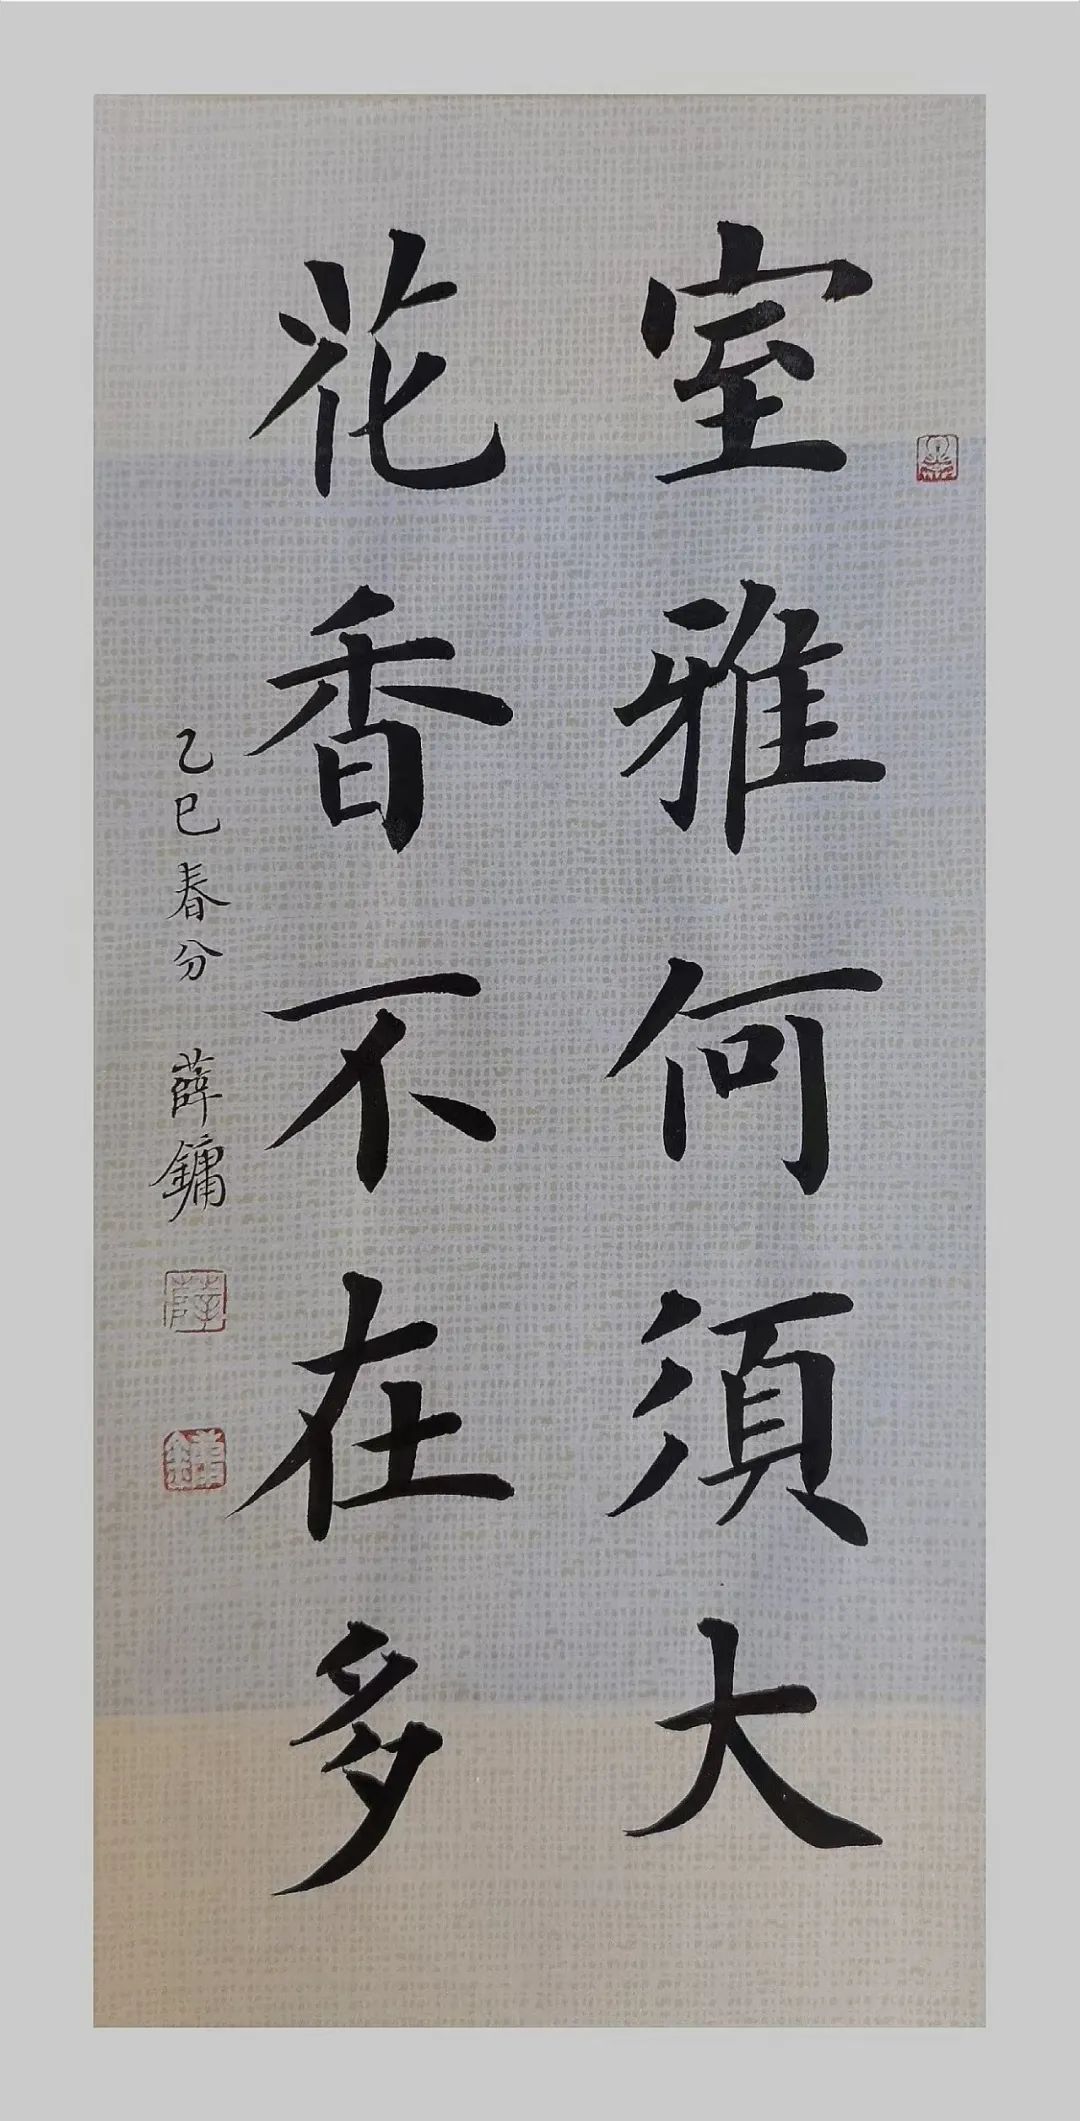 室雅何須大
花香不在多
乙巳春分 薛鏞
薛